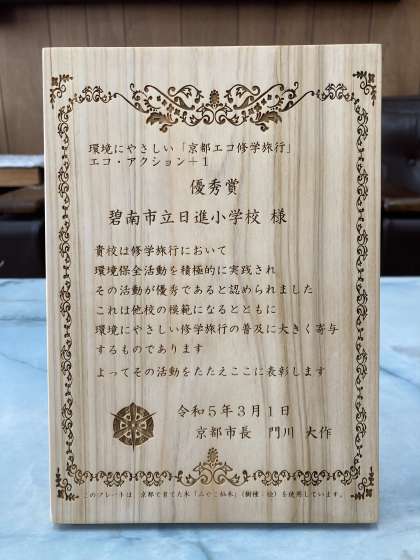 環境にやさしい「京都エコ修学旅行」
エコ・アクション+1
優秀賞
碧南市立日進小学校 様
貴校は修学旅行において
環境保全活動を積極的に実践され
その活動が優秀であると認められました
これは他校の模範になるとともに
環境にやさしい修学旅行の普及に大きく寄与
するものであります
よってその活動をたたえここに表彰します
令和5年3月1日
京都市長 門川 大作
このプレートは 京都で育てた木「みやこ杣木」(樹種:桧)を使用しています。